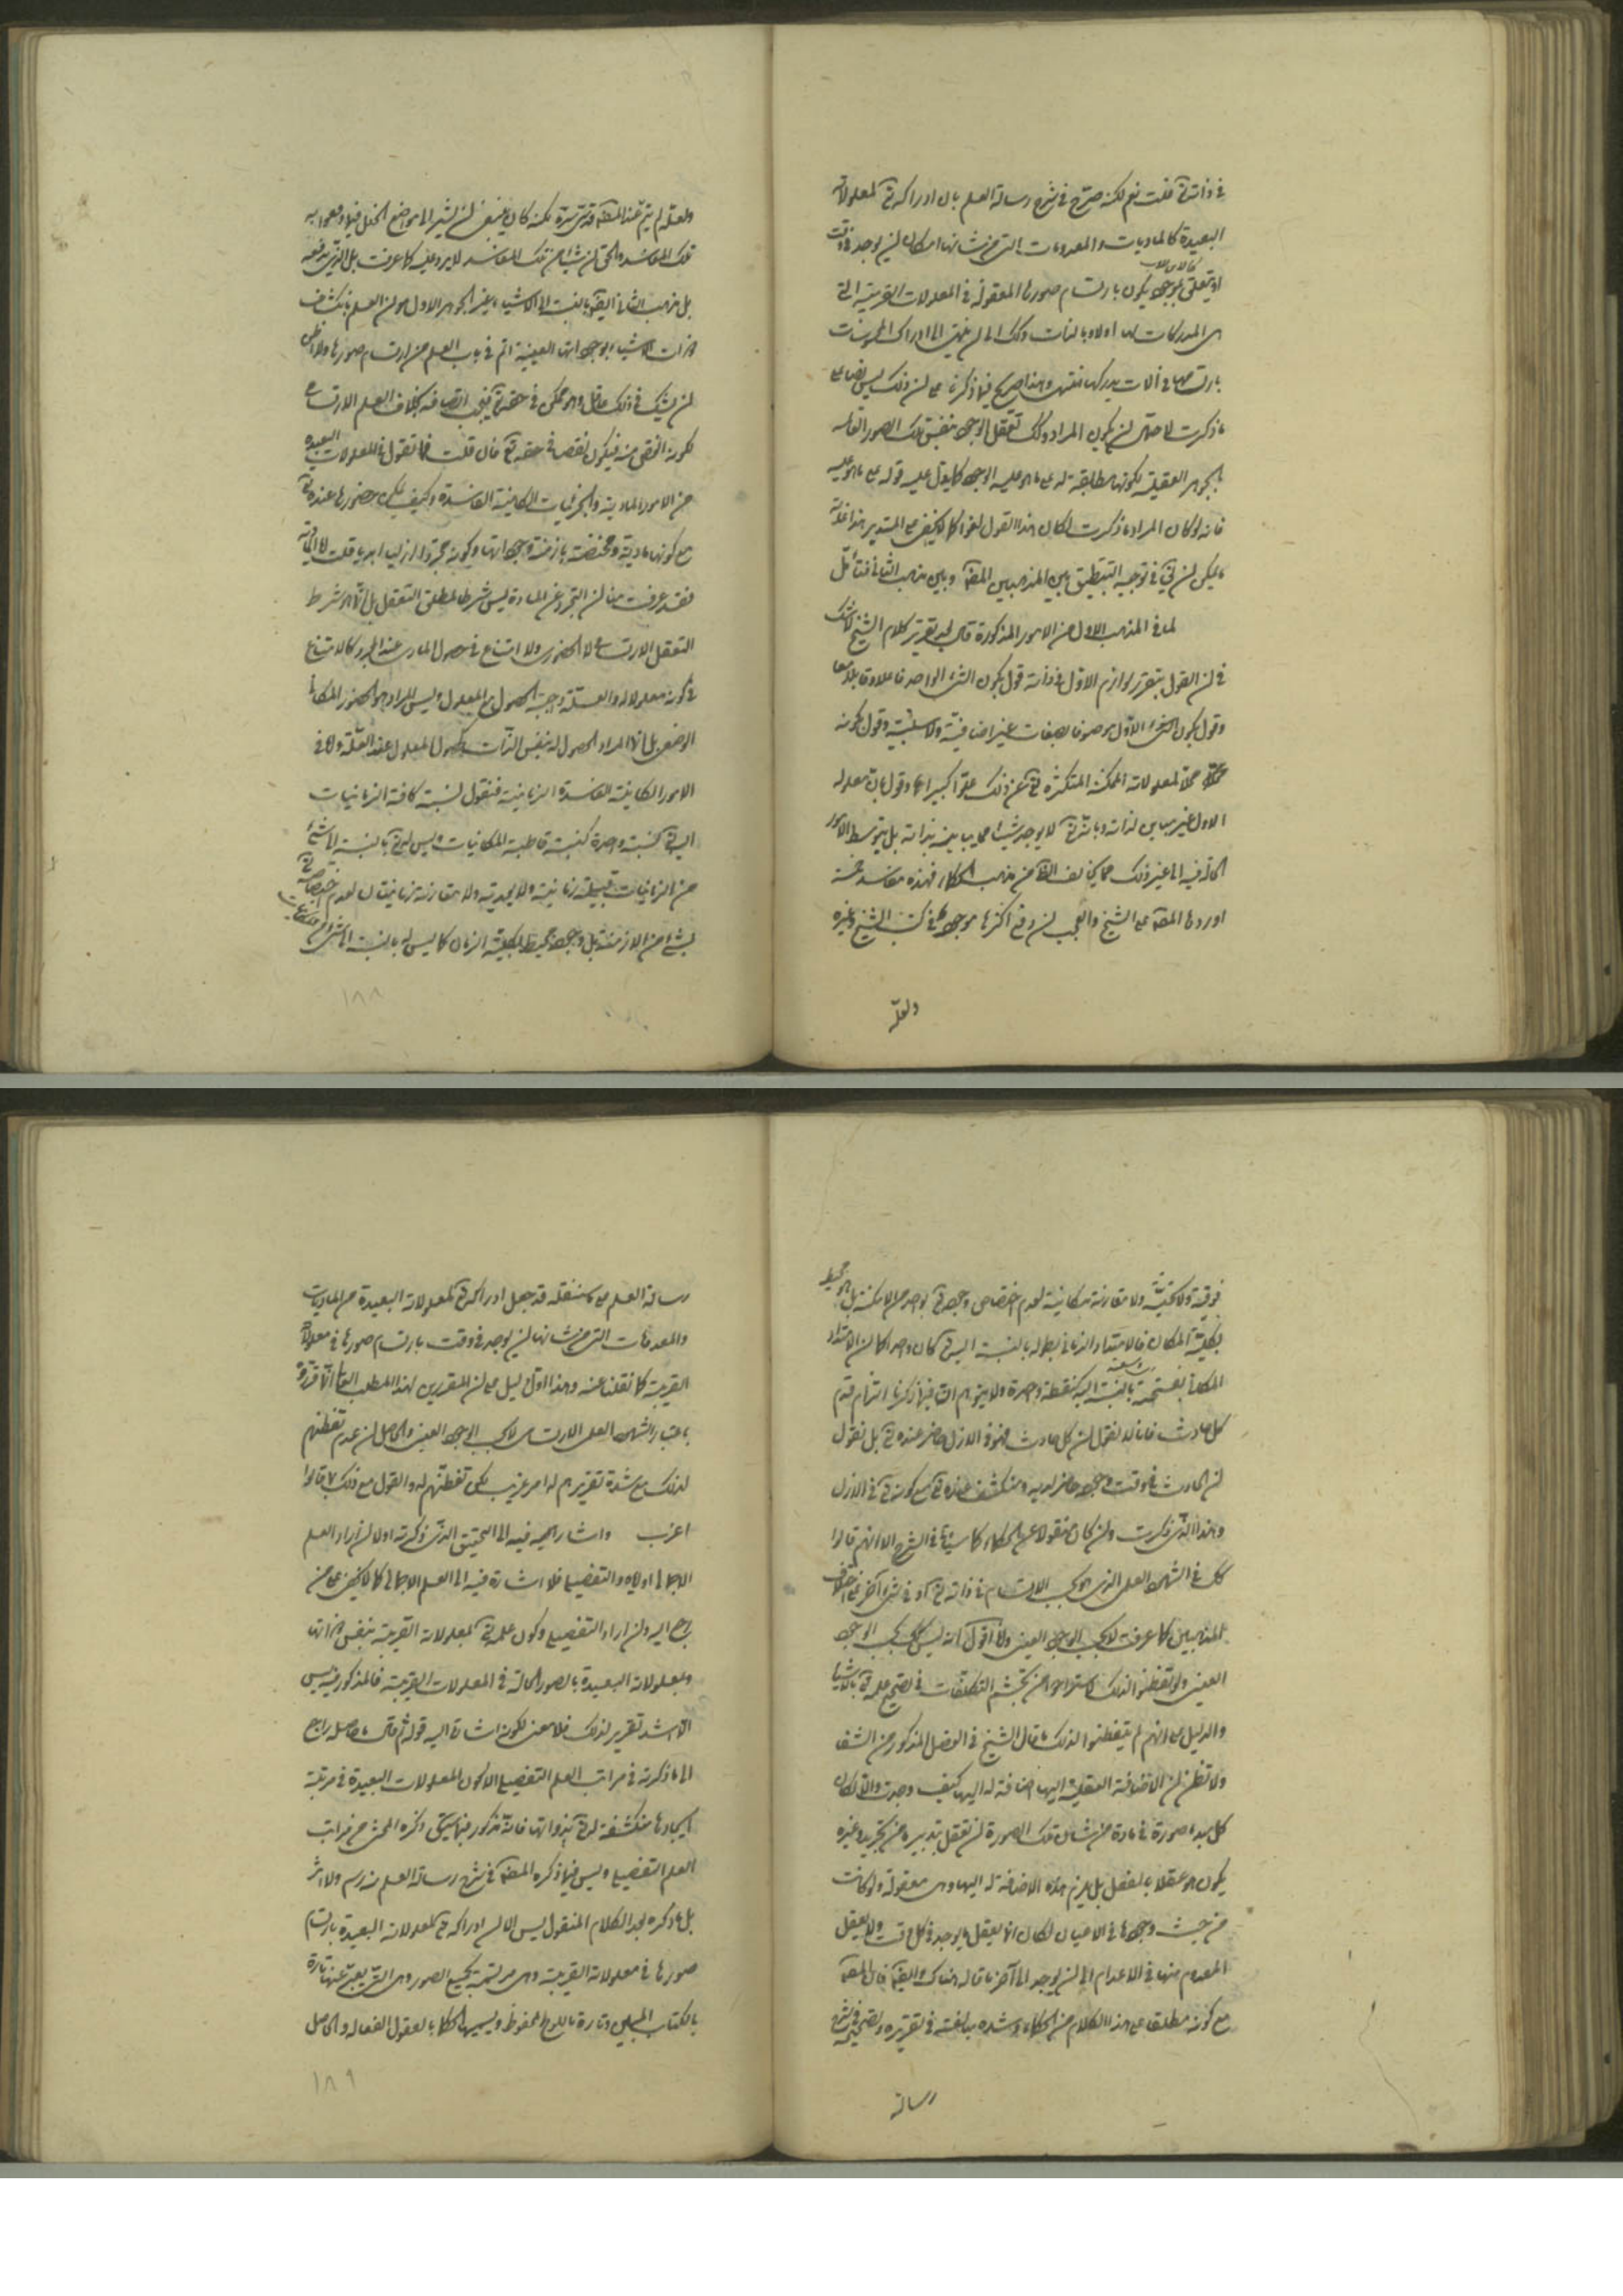 في ذاته تع قلت نعم لكنه صرّح في شرح رسالة العلم بان ادراكه تع لمعلولاته
البعيدة كالماديات والمعدومات التي من شانها امكان ان يوجد في وقت
او يتعلق بموجود يكون بارتسام صورها المعقولة في المعلولات القريبة التي
هي المدركات لها اولا وبالذات وذلك الى ان ينتهي الى ادراك المحسوسات
بارتسامها في آلات يدركها نفسهم وهذا صريح فيما ذكرنا على ان ذلك ليس نصا على
ما ذكرت لاحتمال ان يكون المراد وذلك تعقل الوجود بنفس تلك الصور القائمة
بالجوهر العقلية لكونها مطابقة له على ما هو عليه الوجود كما يدل عليه قوله على ما هو عليه
فانه لو كان المراد ما ذكرت لكان هذا القول لغوا كما لا يخفى على المتدبر هذا غاية
ما يمكن ان يق في توجيه التطبيق بين المذهبين المصه وبين مذهب الثاني فتأمل
لما في المذهب الاول من الامور المذكورة قال بعد تقرير كلام الشيخ لا شك
في ان القول بتقرر لوازم الاول في ذاته قول بكون الشيء الواحد فاعلا وقابلا معا
وقول بكون الشيء الاول موصوفا بصفات غير اضافية ولا سلبية وقول بكونه
محلا لمعلولاته الممكنة المتكثرة تع عن ذلك علوا كبيرا وقول بان معلوله
الاول غير مباين لذاته وبانه تع لا يوجد شيئا مما يباينه بذاته بل بتوسط الامور
الحالة فيه الى غير ذلك مما يخالف الظاهر من مذهب الحكماء فهذه مفاسد خمسة
اوردها المصه على الشيخ والعجب ان دفع اكثرها موجود في كتب الشيخ وغيره
ولعله
ولعله لم يتم عند المصه قدس سره لكنه كان ينبغي ان يشير الى مواضع الخلل فيما دفعوا به
تلك المفاسد والحق ان شيئا من تلك المفاسد لا يرد عليه كما عرفت بل الذي يدفعه
بل مذهب الثاني ايضا بالنسبة الى الاشياء غير الجوهر الاول هو ان العلم بانكشاف
ذوات الاشياء بوجوداتها العينية اتم في باب العلم من ارتسام صورها ولا اظن
ان يشك في ذلك عاقل وهو ممكن في حقه تع فيجب اتصافه به بخلاف العلم الارتسامي
لكونه انقص منه فيكون نقصا في حقه تع فان قلت فما تقول في المعلولات البعيدة
من الامور المادية والجزئيات الكائنة الفاسدة وكيف يمكن حضورها عنده تع
مع كونها مادية ومختصة بازمنة وجوداتها وكونه مجردا ازليا ابديا قلت اما المادية
فقد عرفت منا ان التجرد عن المادة ليس شرطا لمطلق التعقل بل انما هو شرط
التعقل الارتسامي لا الحضوري ولا امتناع في حصول المادي عند المجرد كالامتناع
في كونه معلولا له والعلة واجبة الحصول مع المعلول وليس المراد هو الحضور المكاني
الوضعي بل انما المراد الحصول له بنفس الذات كحصول المعلول عند العلة واما في
الامور الكائنة الفاسدة الزمانية فنقول نسبة كافة الزمانيات
اليه تع كنسبة واحدة كنسبة قاطبة المكانيات وليس له تع بالنسبة الى شيء
من الزمانيات قبلية زمانية ولا بعدية ولا مقارنة زمانيتان لعدم اختصاصه تع
بشيء من الازمنة بل وجوده محيط بكلية الزمان كما ليس له بالنسبة الى شيء من المكانيات
١٨٨
فوقية ولا تحتية ولا مقارنة مكانية لعدم اختصاص وجوده تع بواحد من الامكنة بل هو محيط
بكلية المكان فالامتداد الزماني بطوله بالنسبة اليه تع كان واحد كما ان الامتداد
المكاني بسعته بالنسبة اليه كنقطة واحدة ولا يتوهم ان فيما ذكرنا التزام قدم
كل حادث فانا لا نقول ان كل حادث فهو في الازل حاضر عنده تع بل نقول
ان الحادث في وقت وجوده حاضر لديه ومنكشف عنده تع مع كونه تع في الازل
وهذا الذي ذكرت وان كان منقولا عن الحكماء كما سيأتي في الشرح الا انهم قالوا
ذلك في الشهود العلمي الذي هو بحسب الارتسام في ذاته تع او في شيء آخر على اختلاف
المذهبين كما عرفت لا بحسب الوجود العيني وانا اقول انه ليس كذلك بحسب الوجود
العيني ولو تفطنوا لذلك لاستراحوا من تجشم التكلفات في تصحيح علمه تع بالاشياء
والدليل على انهم لم يتفطنوا لذلك ما قال الشيخ في الفصل المذكور من الشفا
ولا تظن ان الاضافة العقلية اليها اضافة له اليها كيف وجدت والا لكان
كل مبدء صورة في مادة من شان تلك الصورة ان تعقل بتدبير ما من تجريد وغيره
يكون هو عقلا بالفعل بل يلزم هذه الاضافة له اليها وهي معقولة ولو كانت
من حيث وجودها في الاعيان لكان انما يعقل ما يوجد في كل وقت ولا يعقل
المعدوم منها في الاعدام الى ان يوجد الى آخر ما قاله هناك وايضا فان المصه
مع كونه مطلقا على هذا الكلام من الحكماء وشدة مبالغته في تقريره وتصحيحه في شرح
رسالة
رسالة العلم على ما سننقله قد جعل ادراكه تع لمعلولاته البعيدة من الماديات
والمعدومات التي من شانها ان يوجد في وقت بارتسام صورها في معلولاته
القريبة كما نقلنا عنه وهذا اول دليل على ان المقررين لهذا المطلب العالي انما قرروه
باعتبار الشهود العلمي الارتسامي لا بحسب الوجود العيني والحاصل ان عدم تفطنهم
لذلك مع شدة تقريرهم له امر غريب لكن تفطنهم له والقول مع ذلك بما قالوا
اغرب واشار اليه فيه الى التحقيق الذي ذكرته اولا ان اراد العلم
الاجمالي اولا والتفصيلي فلا اشارة فيه الى العلم الاجمالي كما لا يخفى على من
راجع اليه وان اراد التفصيلي وكون علمه تع بمعلولاته القريبة بنفس ذواتها
وبمعلولاته البعيدة بالصور الحالة في المعلولات القريبة فالمذكور فيه ليس
الا شد تقرير لذلك فلا معنى لكونه اشارة اليه قوله ثم قال ما حاصله راجع
الى ما ذكرته في مراتب العلم التفصيلي الا كون المعلولات البعيدة في مرتبة
ايجادها منكشفة له تع بذواتها فانه مذكور فيما سيجيء ذكره المحشي من مراتب
العلم التفصيلي وليس فيما ذكره المصه في شرح رسالة العلم منه رسم ولا اثر
بل ما ذكره بعد الكلام المنقول ليس الا ان ادراكه تع لمعلولاته البعيدة بارتسام
صورها في معلولاته القريبة وهي مرتسمة بجميع الصور وهي التي يعبر عنها تارة
بالكتاب المبين وتارة باللوح المحفوظ ويسميها الحكماء بالعقول الفعالة والحاصل
١٨٩